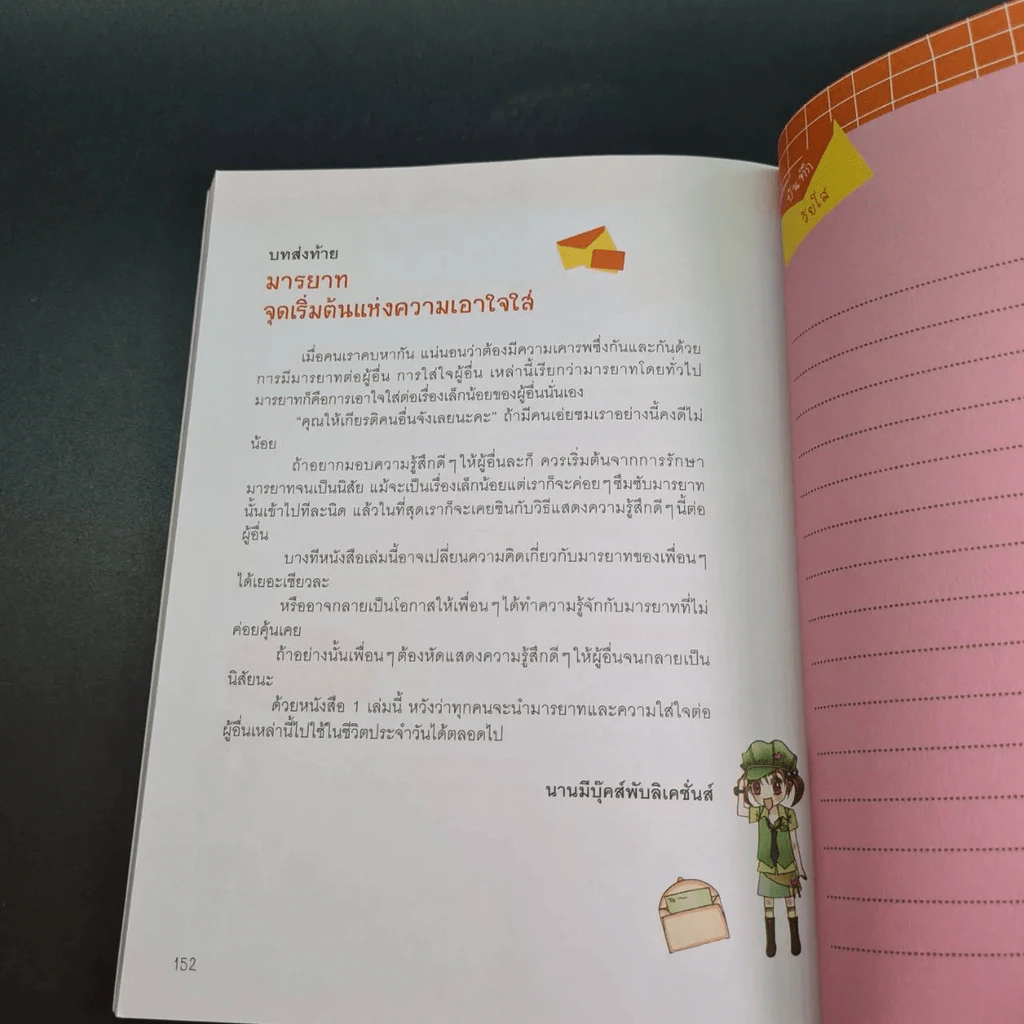 บทส่งท้าย
มารยาท
จุดเริ่มต้นแห่งความเอาใจใส่
เมื่อคนเราคบหากัน แน่นอนว่าต้องมีความเคารพซึ่งกันและกันด้วย
การมีมารยาทต่อผู้อื่น การใส่ใจผู้อื่น เหล่านี้เรียกว่ามารยาทโดยทั่วไป
มารยาทก็คือการเอาใจใส่ต่อเรื่องเล็กน้อยของผู้อื่นนั่นเอง
“คุณให้เกียรติคนอื่นจังเลยนะคะ” ถ้ามีคนเอ่ยชมเราอย่างนี้คงดีไม่
น้อย
ถ้าอยากมอบความรู้สึกดีๆให้ผู้อื่นละก็ ควรเริ่มต้นจากการรักษา
มารยาทจนเป็นนิสัย แม้จะเป็นเรื่องเล็กน้อยแต่เราก็จะค่อยๆซึมซับมารยาท
นั้นเข้าไปทีละนิด แล้วในที่สุดเราก็จะเคยชินกับวิธีแสดงความรู้สึกดีๆนี้ต่อ
ผู้อื่น
บางทีหนังสือเล่มนี้อาจเปลี่ยนความคิดเกี่ยวกับมารยาทของเพื่อนๆ
ได้เยอะเชียวละ
หรืออาจกลายเป็นโอกาสให้เพื่อนๆได้ทำความรู้จักกับมารยาทที่ไม่
ค่อยคุ้นเคย
ถ้าอย่างนั้นเพื่อนๆต้องหัดแสดงความรู้สึกดีๆให้ผู้อื่นจนกลายเป็น
นิสัยนะ
ด้วยหนังสือ 1 เล่มนี้ หวังว่าทุกคนจะนำมารยาทและความใส่ใจต่อ
ผู้อื่นเหล่านี้ไปใช้ในชีวิตประจำวันได้ตลอดไป
นานมีบุ๊คส์พับลิเคชั่นส์
152
บันทึก
วัยใส